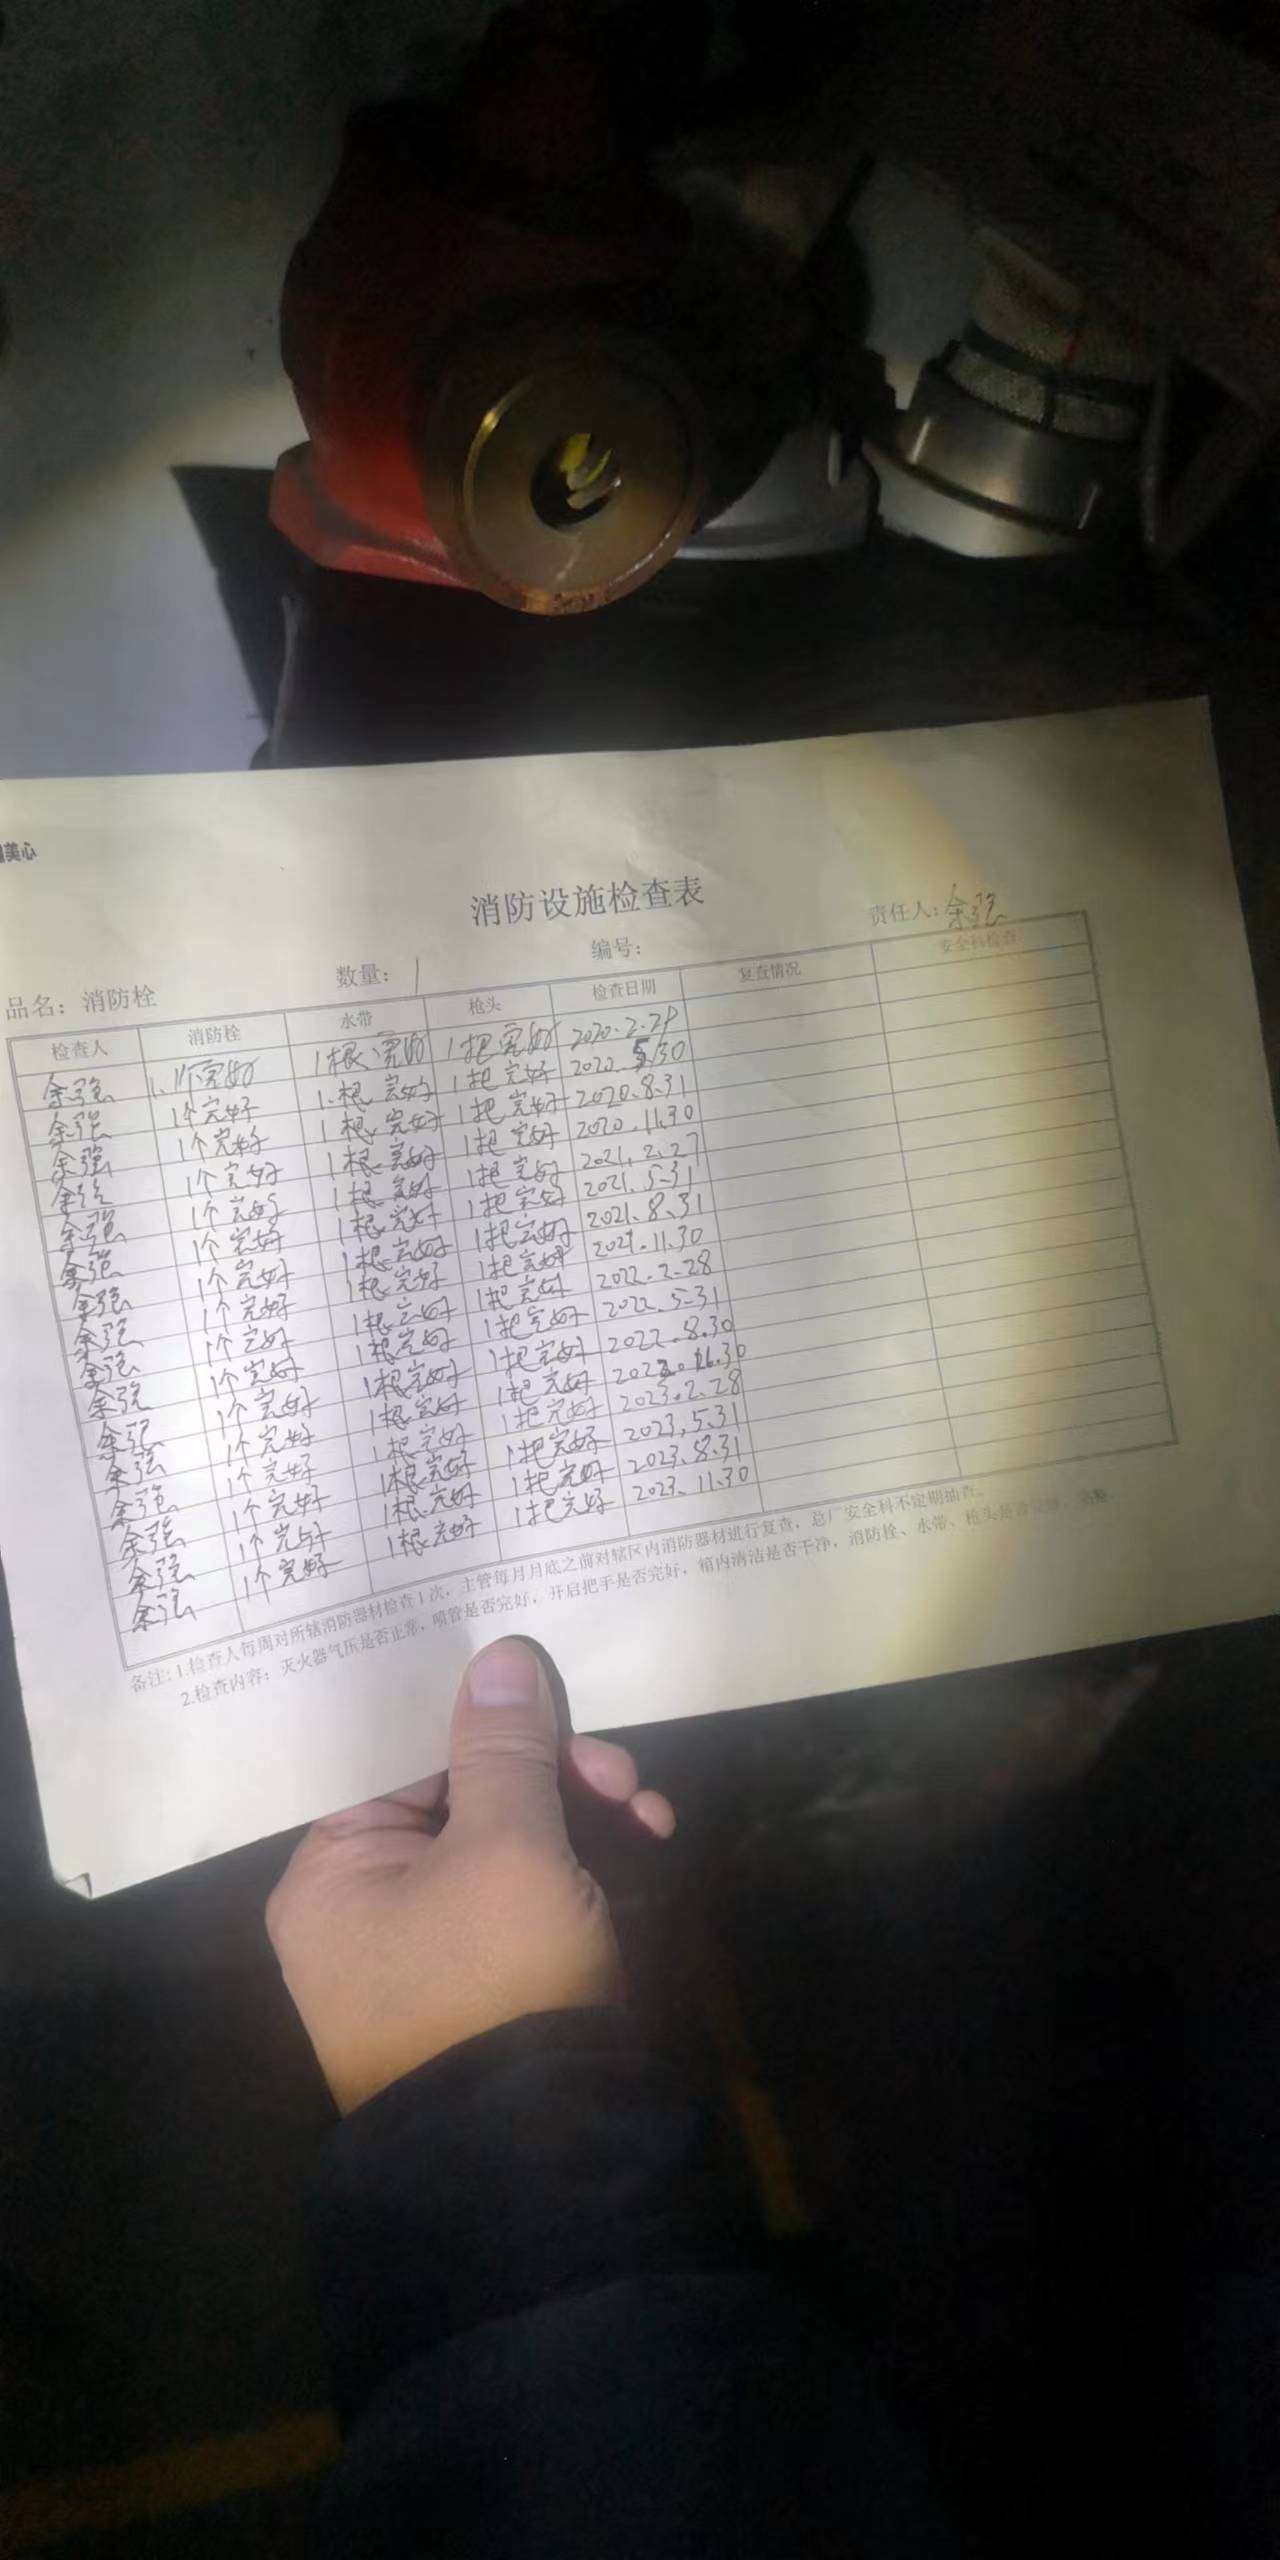 美心
消防设施检查表
品名：消防栓 数量：1 编号： 责任人：余强
检查人 消防栓 水带 枪头 检查日期 复查情况 安全科检查
余强 1个完好 1根完好 1把完好 2020.2.29
余强 1个完好 1根完好 1把完好 2022.5.30
余强 1个完好 1根完好 1把完好 2020.8.31
余强 1个完好 1根完好 1把完好 2020.11.30
余强 1个完好 1根完好 1把完好 2021.2.27
余强 1个完好 1根完好 1把完好 2021.5.31
余强 1个完好 1根完好 1把完好 2021.8.31
余强 1个完好 1根完好 1把完好 2021.11.30
余强 1个完好 1根完好 1把完好 2022.2.28
余强 1个完好 1根完好 1把完好 2022.5.31
余强 1个完好 1根完好 1把完好 2022.8.30
余强 1个完好 1根完好 1把完好
余强 1个完好 1根完好 1把完好 2023.2.28
余强 1个完好 1根完好 1把完好 2023.5.31
余强 1个完好 1根完好 1把完好 2023.8.31
余强 1个完好 1根完好 1把完好 2023.11.30
备注：1.检查人每周对所辖消防器材检查1次，主管每月月底之前对辖区内消防器材进行复查，总厂安全科不定期抽查。
2.检查内容：灭火器气压是否正常，喷管是否完好，开启把手是否完好，箱内清洁是否干净，消防栓、水带、枪头是否